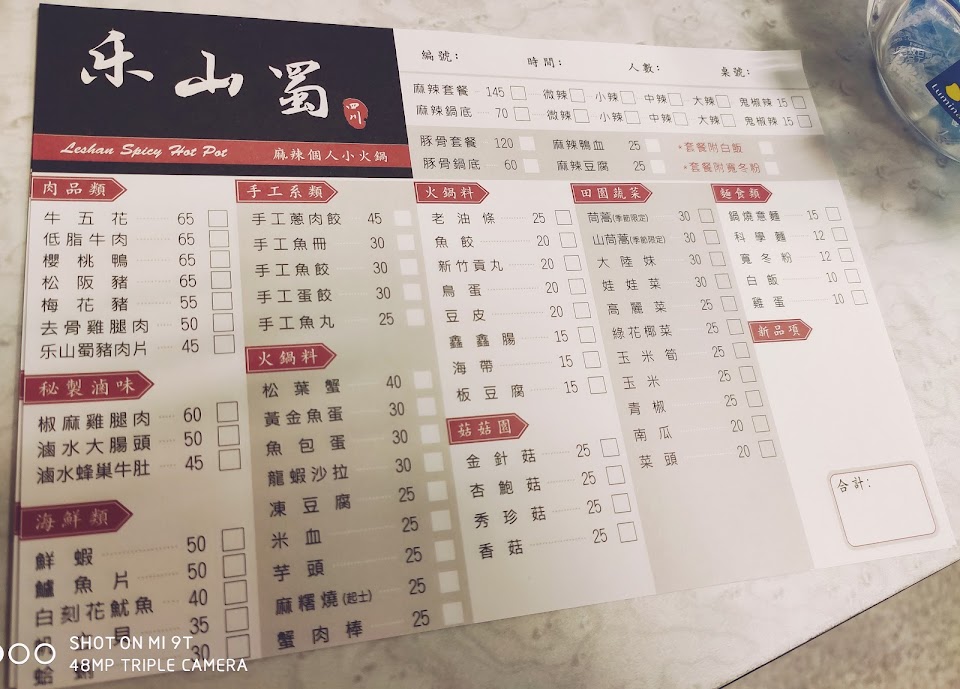 乐山蜀
四川
Leshan Spicy Hot Pot 麻辣個人小火鍋
編號: 時間: 人數: 桌號:
麻辣套餐 145 微辣 小辣 中辣 大辣 鬼椒辣 15
麻辣鍋底 70 微辣 小辣 中辣 大辣 鬼椒辣 15
豚骨套餐 120 麻辣鴨血 25 *套餐附白飯
豚骨鍋底 60 麻辣豆腐 25 *套餐附寬冬粉
肉品類
牛五花 65
低脂牛肉 65
櫻桃鴨 65
松阪豬 65
梅花豬 55
去骨雞腿肉 50
乐山蜀豬肉片 45
秘製滷味
椒麻雞腿肉 60
滷水大腸頭 50
滷水蜂巢牛肚 45
海鮮類
鮮蝦 50
鱸魚片 50
白刻花魷魚 40
35
30
手工系類
手工蔥肉餃 45
手工魚冊 30
手工魚餃 30
手工蛋餃 30
手工魚丸 25
火鍋料
松葉蟹 40
黃金魚蛋 30
魚包蛋 30
龍蝦沙拉 30
凍豆腐 25
米血 25
芋頭 25
麻糬燒(起士) 25
蟹肉棒 25
火鍋料
老油條 25
魚餃 20
新竹貢丸 20
鳥蛋 20
豆皮 20
鑫鑫腸 15
海帶 15
板豆腐 15
菇菇園
金針菇 25
杏鮑菇 25
秀珍菇 25
香菇 25
田園蔬菜
茼蒿(季節限定) 30
山茼蒿(季節限定) 30
大陸妹 30
娃娃菜 30
高麗菜 25
綠花椰菜 25
玉米筍 25
玉米 25
青椒 25
南瓜 20
菜頭 20
麵食類
鍋燒意麵 15
科學麵 12
寬冬粉 12
白飯 10
雞蛋 10
新品項
合計:
SHOT ON MI 9T
48MP TRIPLE CAMERA